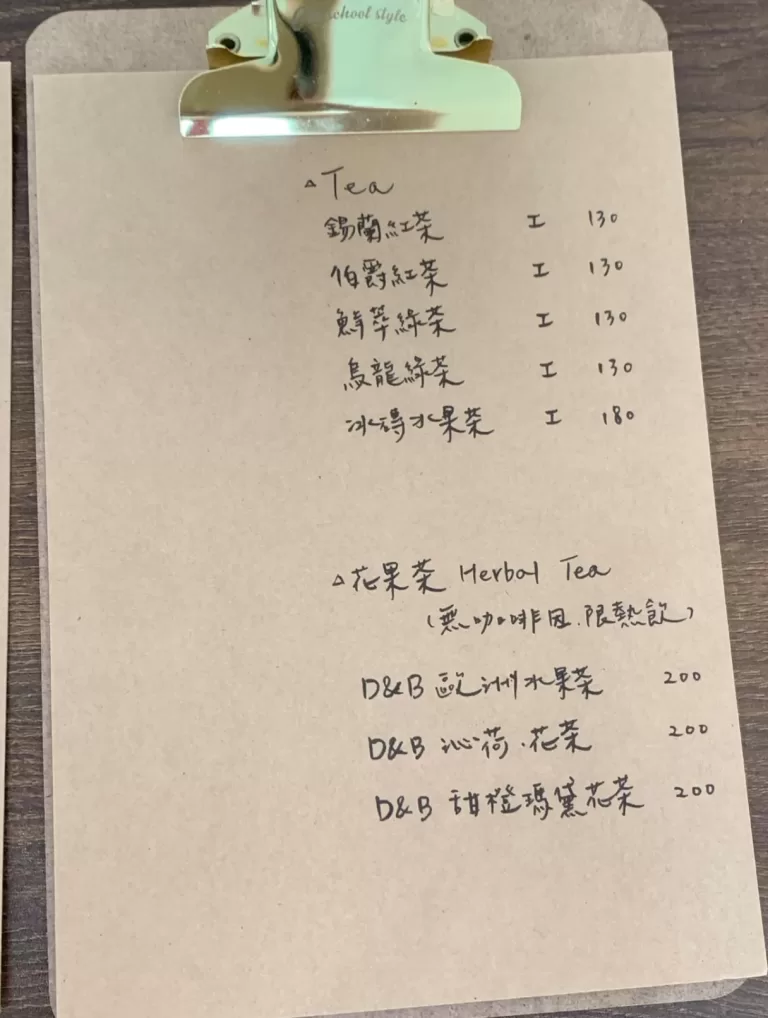 school style
△Tea
錫蘭紅茶 I 130
伯爵紅茶 I 130
鮮萃綠茶 I 130
烏龍綠茶 I 130
冰得水果茶 I 180
△花果茶 Herbal Tea
(無咖啡因.限熱飲)
D&B 歐洲水果茶 200
D&B 沁荷.花茶 200
D&B 甜橙瑪黛花茶 200